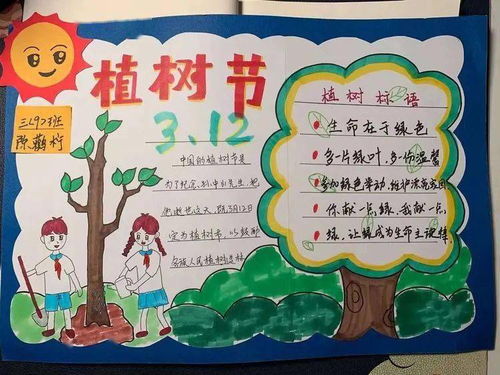 植树节
3.12
三(9)班
陈
中国的植树节是
为了纪念孙中山先生,把
他逝世这天,既3月12日
定为植树节,以鼓励
各族人民植树造林
植树标语
生命在于绿色
多一片绿叶,多一份温馨
参加绿色劳动,维护漂亮家园
你献一点绿,我献一点
绿,让绿成为生命主旋律